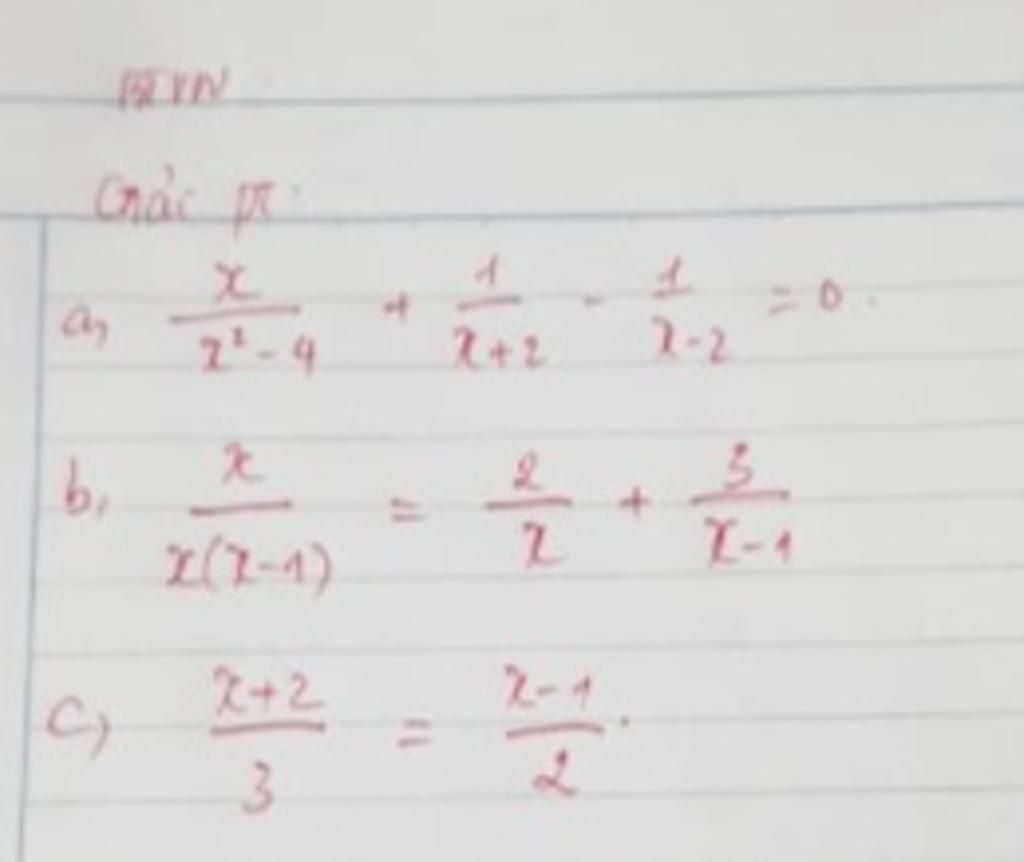 BTVN
Giải pt:
a, x/(x² - 4) + 1/(x+2) - 1/(x-2) = 0.
b, x/(x(x-1)) = 2/x + 3/(x-1)
c, (x+2)/3 = (x-1)/2.